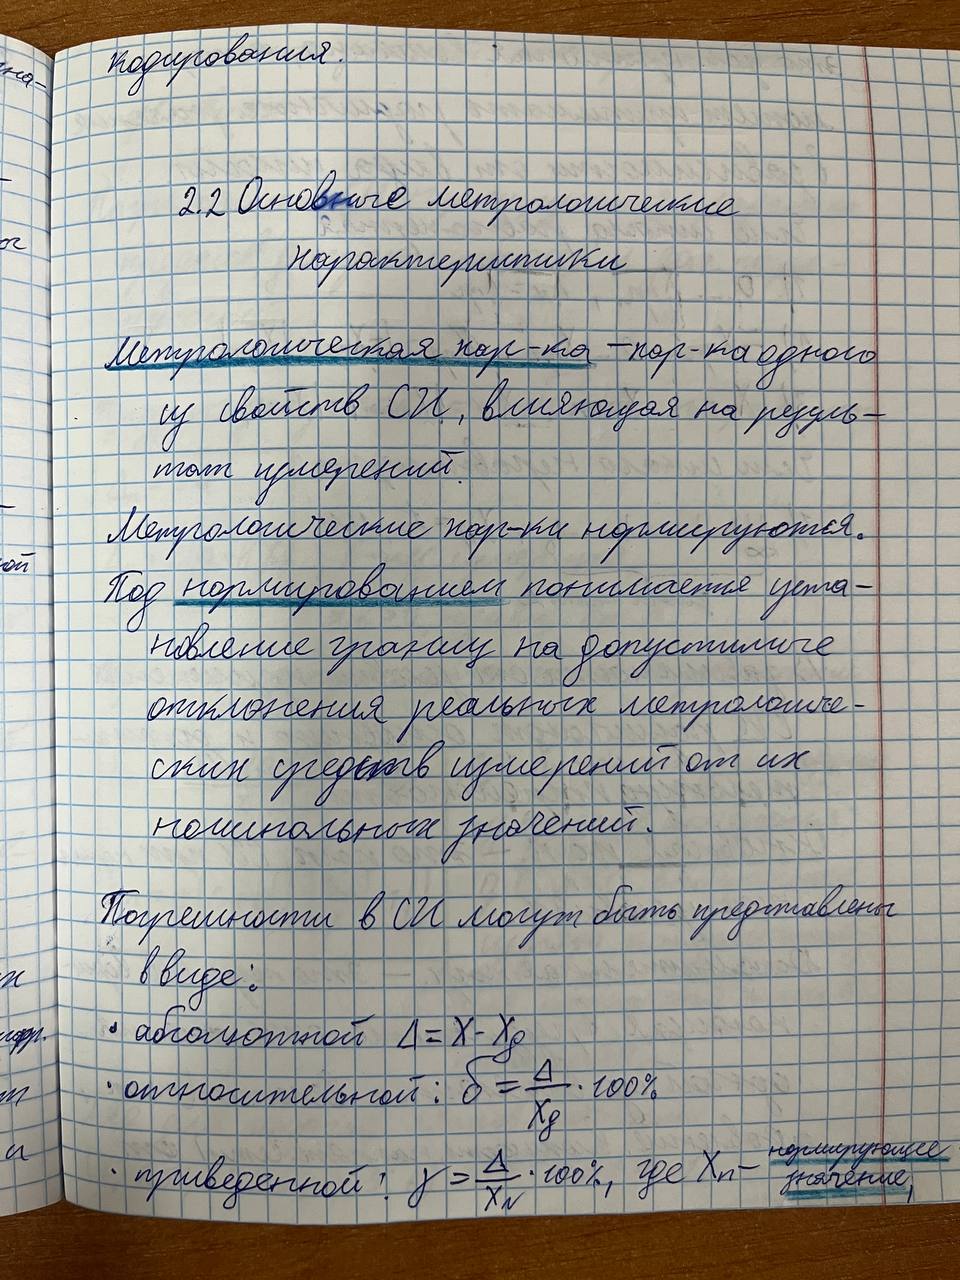 кодирования.
2.2 Основные метрологические
характеристики
Метрологическая хар-ка – хар-ка одного
из свойств СИ, влияющая на резуль-
тат измерений.
Метрологические хар-ки нормируются.
Под нормированием понимается уста-
новление границ на допустимые
отклонения реальных метрологиче-
ских средств измерений от их
номинальных значений.
Погрешности в СИ могут быть представлены
в виде:
· абсолютной Δ = X - Xд
· относительной: δ = Δ/Xд · 100%
· приведенной: γ = Δ/XN · 100%, где Xn – нормирующее
значение,